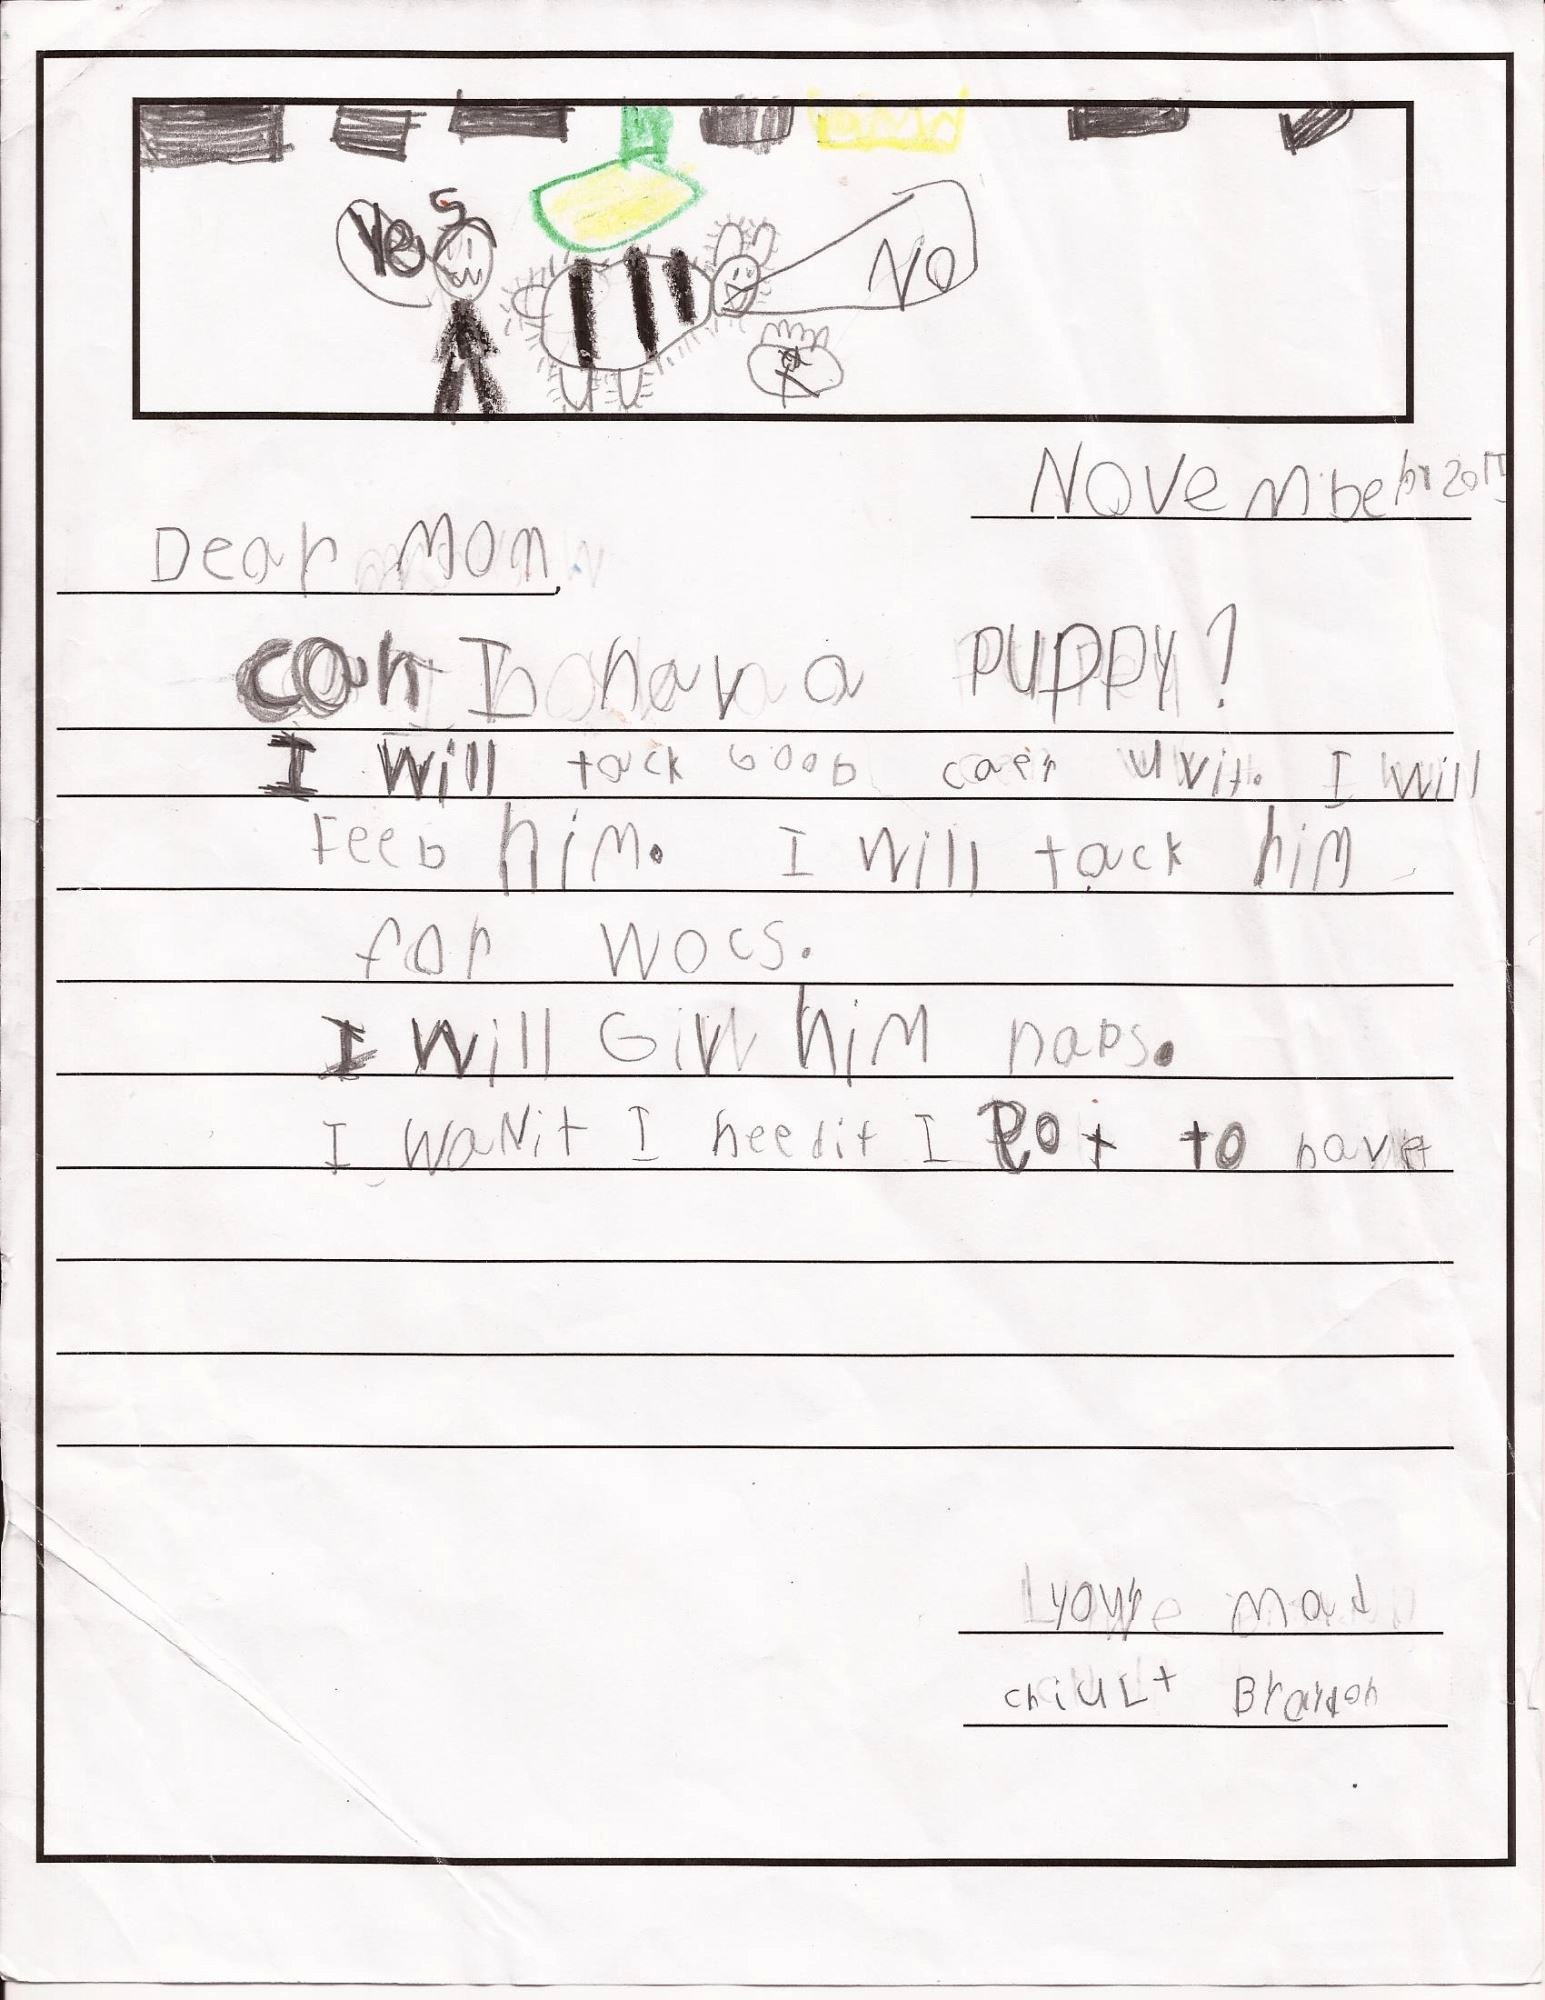 Yes
No
November 2015
Dear Mom,
can I hav a PUPPY?
I will tack Goob caer uvit. I will
Feeb him. I will tack him
for wocs.
I will Giv him naps.
I waNit I needit I got to have
youre mad
chiuLt Brandon